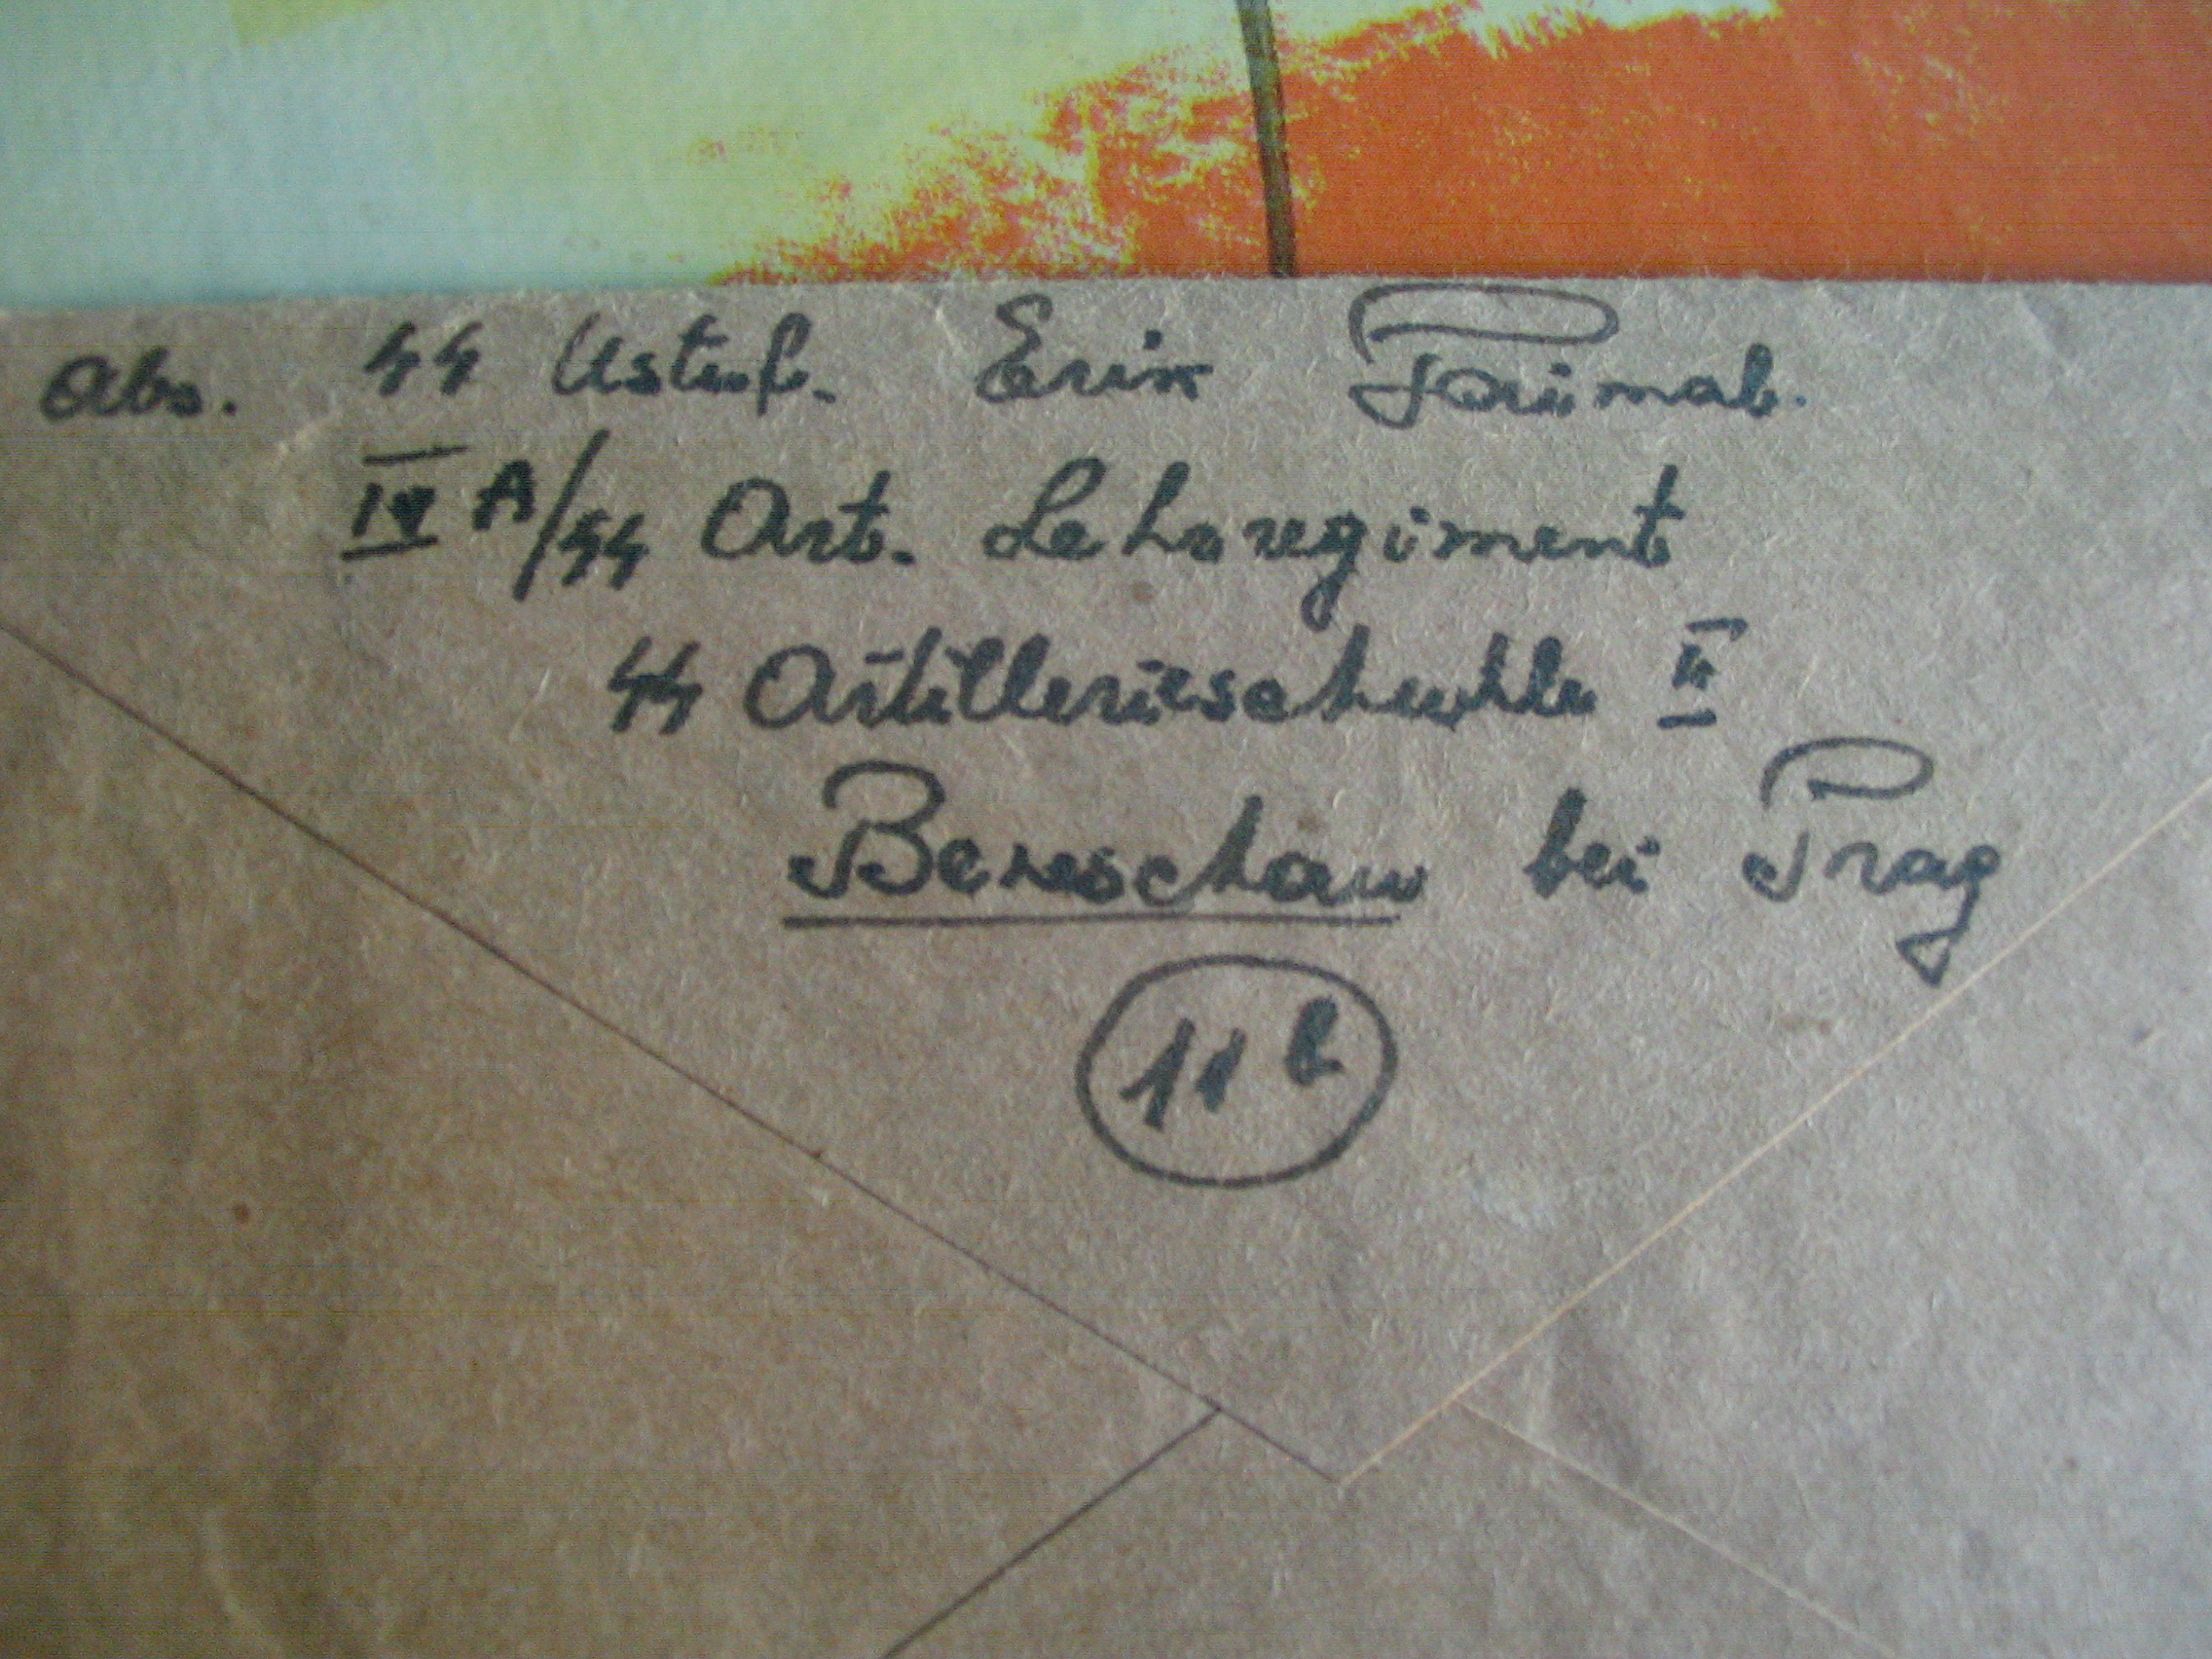 Abs. ᛋᛋ Ustuf. Erik
IV A/ᛋᛋ Art. Lehrregiment
ᛋᛋ Artillerieschuhle II
Beneschau bei Prag
11 b